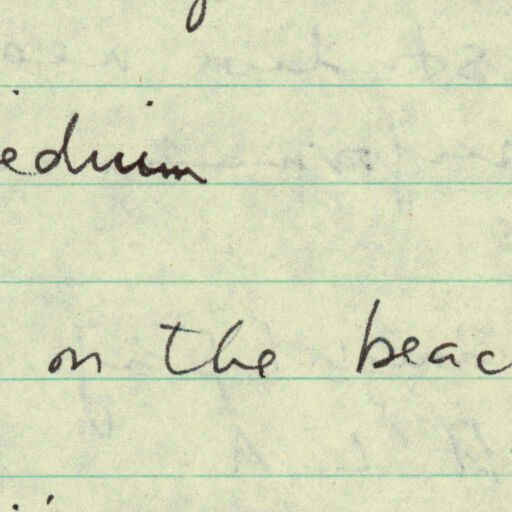 edium
on the beac